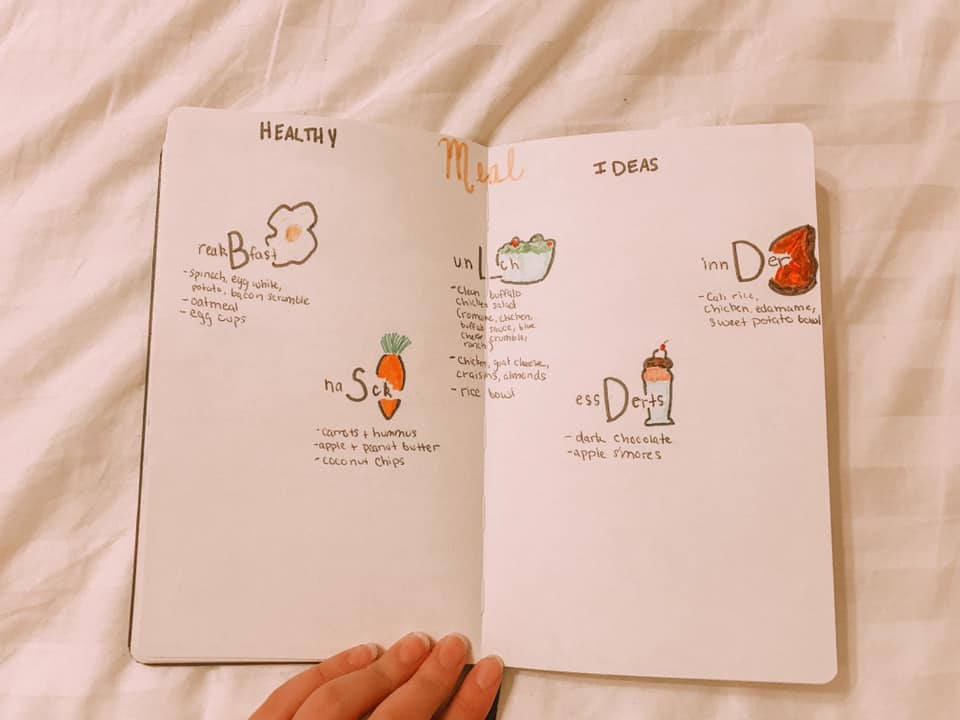 HEALTHY Meal IDEAS
reakBfast
-spinach, egg white,
potato, bacon scramble
-oatmeal
-egg cups
naSck
-carrots + hummus
-apple + peanut butter
-coconut chips
unLch
-Clean buffalo
chicken salad
(romaine, chicken,
buffalo sauce, blue
cheese crumble,
ranch)
-Chicken, goat cheese,
craisins, almonds
-rice bowl
essDerts
-dark chocolate
-apple s'mores
innDer
-Cali rice,
chicken, edamame,
sweet potato bowl